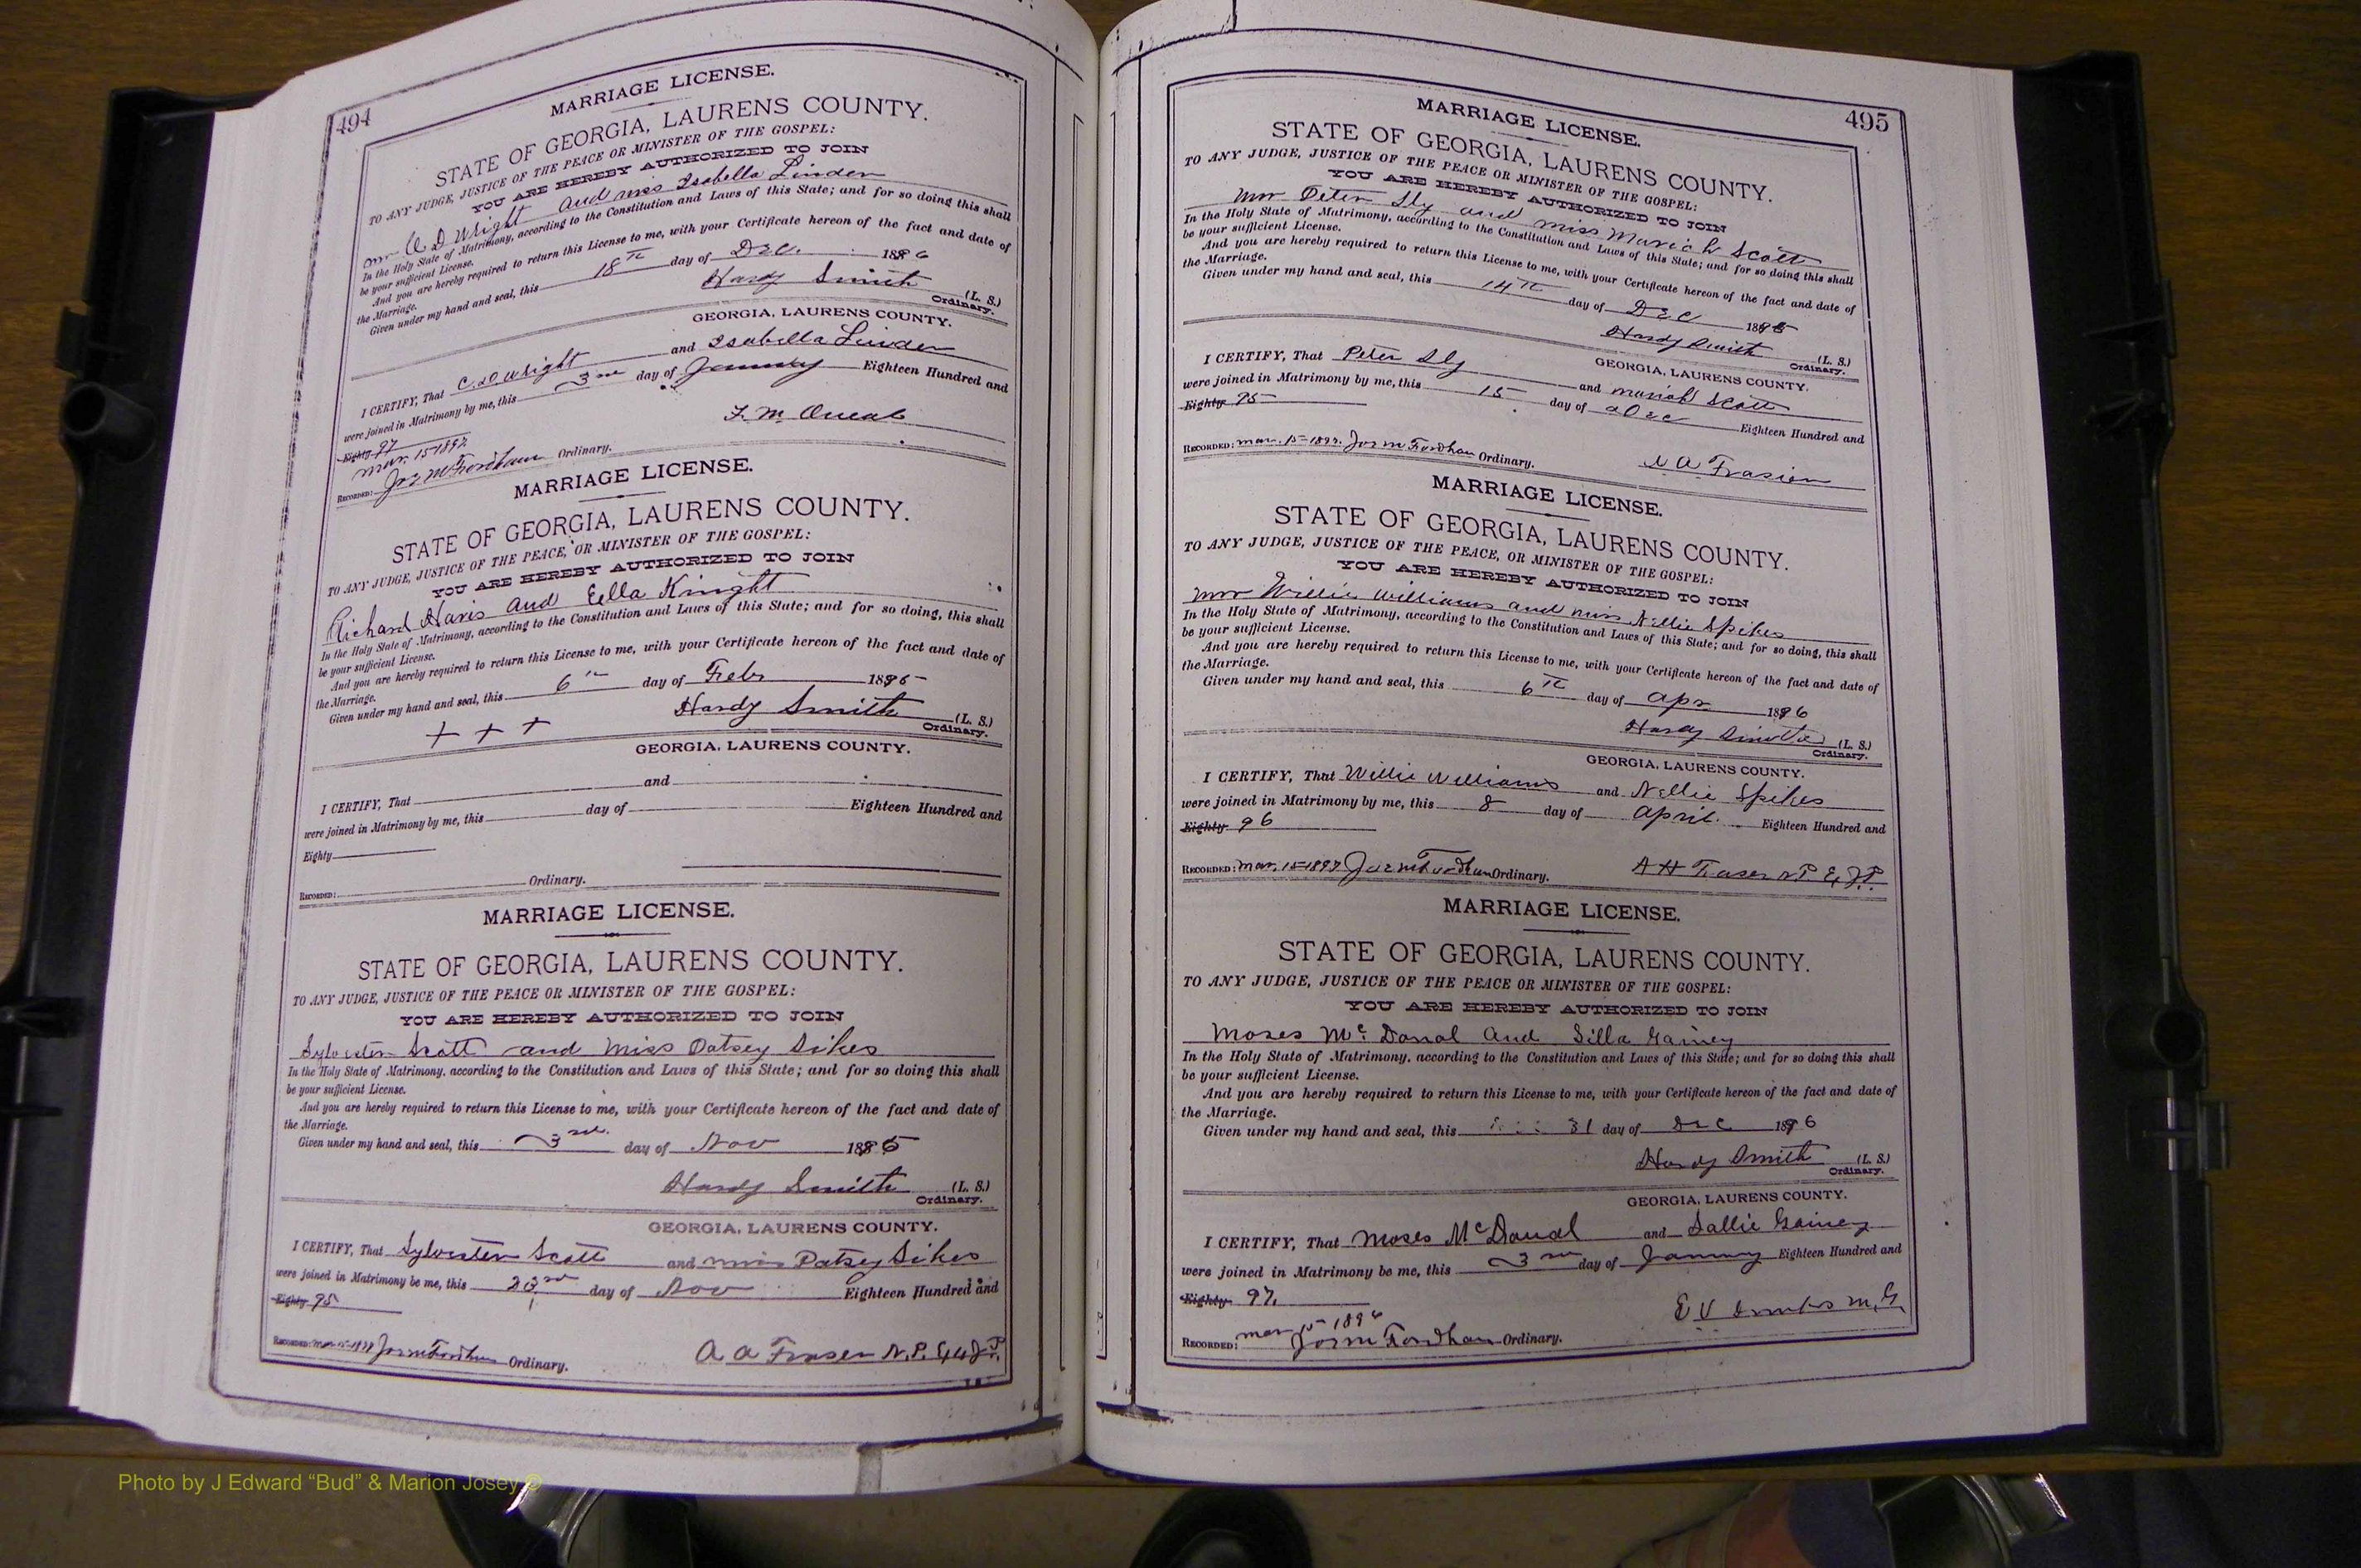 494
MARRIAGE LICENSE.
STATE OF GEORGIA, LAURENS COUNTY.
TO ANY JUDGE, JUSTICE OF THE PEACE OR MINISTER OF THE GOSPEL:
YOU ARE HEREBY AUTHORIZED TO JOIN
Mr C D Wright and miss Isabella Linder
In the Holy State of Matrimony, according to the Constitution and Laws of this State; and for so doing this shall
be your sufficient License.
And you are hereby required to return this License to me, with your Certificate hereon of the fact and date of
the Marriage.
Given under my hand and seal, this 18th day of Dec. 1896
Hardy Smith (L. S.)
Ordinary.
GEORGIA, LAURENS COUNTY.
I CERTIFY, That C. D Wright and Isabella Linder
were joined in Matrimony by me, this 3rd day of January Eighteen Hundred and
Eighty 97
F. M. Oneal
Mar. 15 1897
RECORDED: Jos M Fordham Ordinary.
MARRIAGE LICENSE.
STATE OF GEORGIA, LAURENS COUNTY.
TO ANY JUDGE, JUSTICE OF THE PEACE, OR MINISTER OF THE GOSPEL:
YOU ARE HEREBY AUTHORIZED TO JOIN
Richard Haris and Ella Knight
In the Holy State of Matrimony, according to the Constitution and Laws of this State; and for so doing, this shall
be your sufficient License.
And you are hereby required to return this License to me, with your Certificate hereon of the fact and date of
the Marriage.
Given under my hand and seal, this 6th day of Feby 1895
+ + + Hardy Smith (L. S.)
Ordinary.
GEORGIA, LAURENS COUNTY.
I CERTIFY, That and
were joined in Matrimony by me, this day of Eighteen Hundred and
Eighty
RECORDED: Ordinary.
MARRIAGE LICENSE.
STATE OF GEORGIA, LAURENS COUNTY.
TO ANY JUDGE, JUSTICE OF THE PEACE OR MINISTER OF THE GOSPEL:
YOU ARE HEREBY AUTHORIZED TO JOIN
Sylvester Scott and Miss Patsey Sikes
In the Holy State of Matrimony, according to the Constitution and Laws of this State; and for so doing this shall
be your sufficient License.
And you are hereby required to return this License to me, with your Certificate hereon of the fact and date of
the Marriage.
Given under my hand and seal, this 3rd day of Nov 1895
Hardy Smith (L. S.)
Ordinary.
GEORGIA, LAURENS COUNTY.
I CERTIFY, That Sylvester Scott and miss Patsey Sikes
were joined in Matrimony be me, this 23rd day of Nov Eighteen Hundred and
Eighty 95
RECORDED: Mar 15-1897 Jos M Fordham Ordinary. A A Fraser N. P.
495
MARRIAGE LICENSE.
STATE OF GEORGIA, LAURENS COUNTY.
TO ANY JUDGE, JUSTICE OF THE PEACE OR MINISTER OF THE GOSPEL:
YOU ARE HEREBY AUTHORIZED TO JOIN
Mr Peter Sly and miss Mariah Scott
In the Holy State of Matrimony, according to the Constitution and Laws of this State; and for so doing this shall
be your sufficient License.
And you are hereby required to return this License to me, with your Certificate hereon of the fact and date of
the Marriage.
Given under my hand and seal, this 14th day of Dec 1895
Hardy Smith (L. S.)
Ordinary.
GEORGIA, LAURENS COUNTY.
I CERTIFY, That Peter Sly and mariah Scott
were joined in Matrimony by me, this 15 day of Dec Eighteen Hundred and
Eighty 95
RECORDED: Mar. 15-1897. Jos M Fordham Ordinary. A Frasier
MARRIAGE LICENSE.
STATE OF GEORGIA, LAURENS COUNTY.
TO ANY JUDGE, JUSTICE OF THE PEACE, OR MINISTER OF THE GOSPEL:
YOU ARE HEREBY AUTHORIZED TO JOIN
Mr Willie Williams and miss Nellie Spikes
In the Holy State of Matrimony, according to the Constitution and Laws of this State; and for so doing, this shall
be your sufficient License.
And you are hereby required to return this License to me, with your Certificate hereon of the fact and date of
the Marriage.
Given under my hand and seal, this 6th day of Apr 1896
Hardy Smith (L. S.)
Ordinary.
GEORGIA, LAURENS COUNTY.
I CERTIFY, That Willie Williams and Nellie Spikes
were joined in Matrimony by me, this 8 day of April Eighteen Hundred and
Eighty 96
RECORDED: Mar. 15-1897 Jos M Fordham Ordinary. A H Fraser N P & J.P.
MARRIAGE LICENSE.
STATE OF GEORGIA, LAURENS COUNTY.
TO ANY JUDGE, JUSTICE OF THE PEACE OR MINISTER OF THE GOSPEL:
YOU ARE HEREBY AUTHORIZED TO JOIN
Moses McDonal and Silla Gainey
In the Holy State of Matrimony, according to the Constitution and Laws of this State; and for so doing this shall
be your sufficient License.
And you are hereby required to return this License to me, with your Certificate hereon of the fact and date of
the Marriage.
Given under my hand and seal, this 31 day of Dec 1896
Hardy Smith (L. S.)
Ordinary.
GEORGIA, LAURENS COUNTY.
I CERTIFY, That Moses McDonal and Sallie Gainey
were joined in Matrimony be me, this 3rd day of January Eighteen Hundred and
Eighty 97
E V M. G.
Mar 15-1897
RECORDED: Jos M Fordham Ordinary.
Photo by J Edward “Bud” & Marion Josey ©